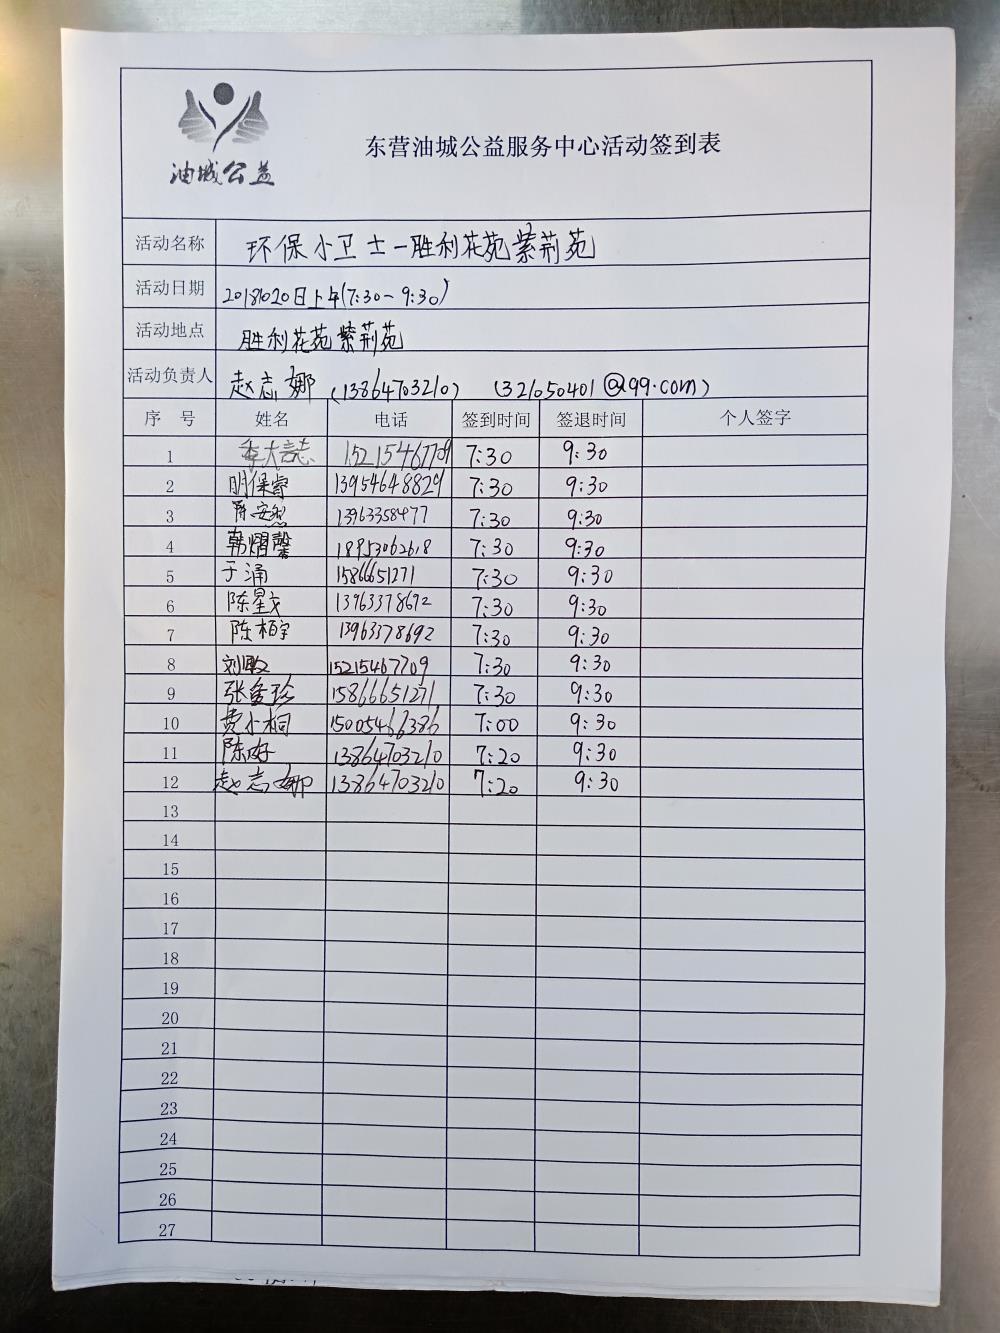 油城公益
东营油城公益服务中心活动签到表
活动名称 环保小卫士-胜利花苑紫荆苑
活动日期 20181020日上午(7:30-9:30)
活动地点 胜利花苑紫荆苑
活动负责人 赵志娜 (13864703210) (321050401@qq.com)
序 号 姓名 电话 签到时间 签退时间 个人签字
1 李大志 15215467709 7:30 9:30
2 明保睿 13954648829 7:30 9:30
3 13963358477 7:30 9:30
4 韩熠馨 18953062618 7:30 9:30
5 于涌 15866651271 7:30 9:30
6 陈星 13963378692 7:30 9:30
7 陈柏宇 13963378692 7:30 9:30
8 刘敏 15215467709 7:30 9:30
9 张 珍 15866651271 7:30 9:30
10 贾小桐 15005466386 7:00 9:30
11 陈好 13864703210 7:20 9:30
12 赵志娜 13864703210 7:20 9:30
13
14
15
16
17
18
19
20
21
22
23
24
25
26
27